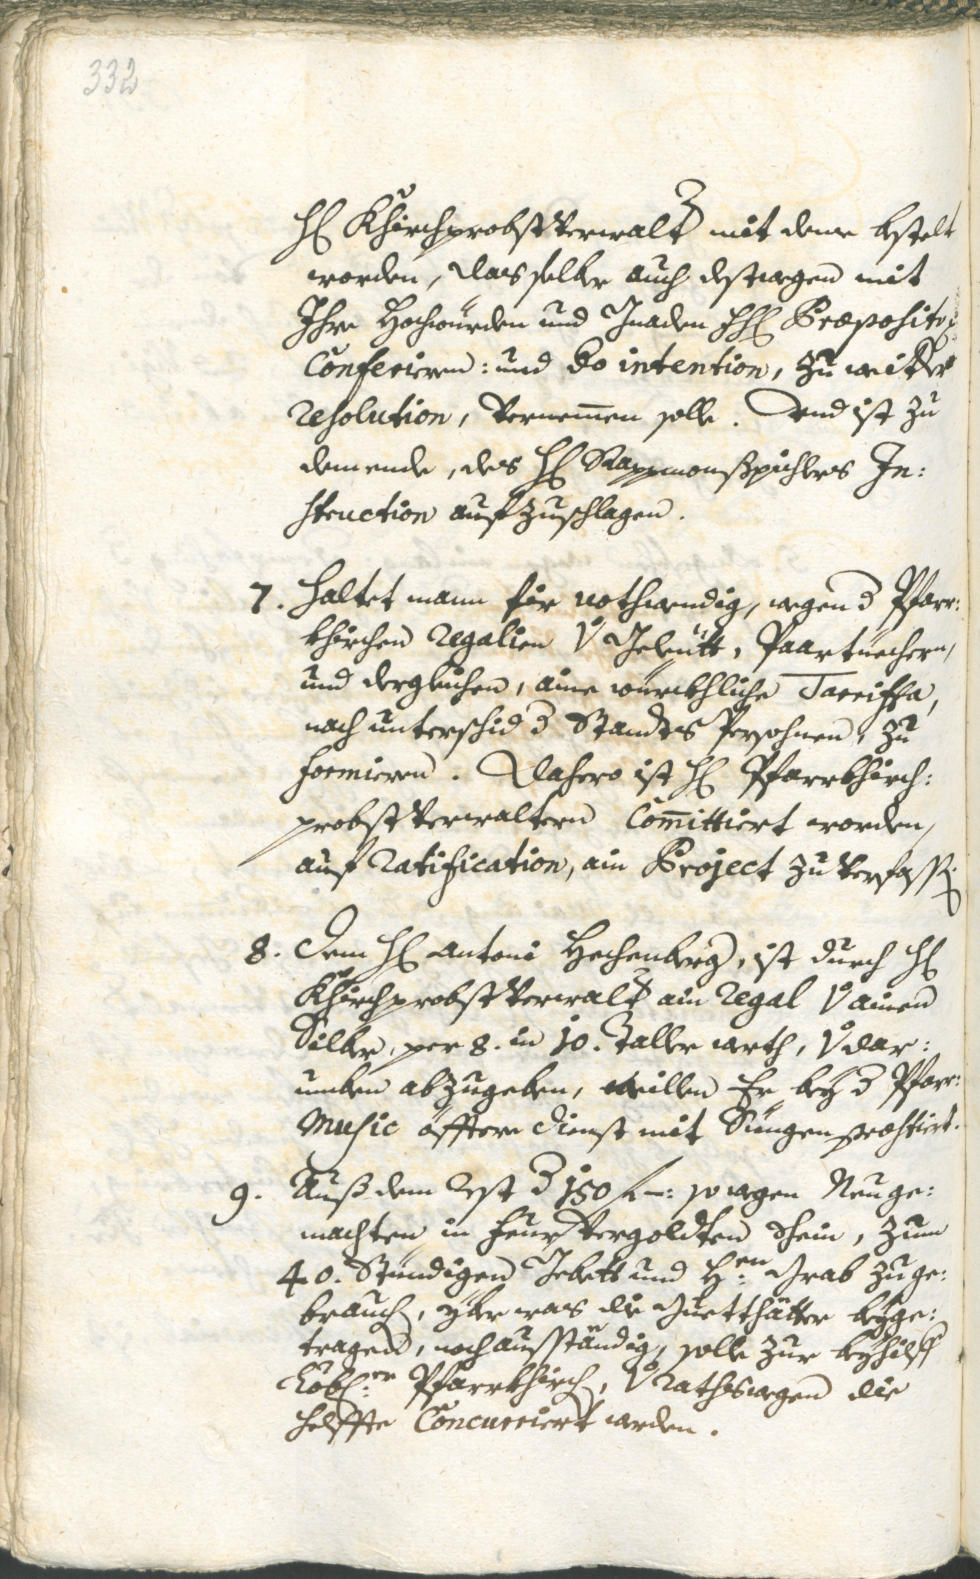 332
H: Khirchprobst Verwalt: mit deme bstelt
worden, das selber auch destwegen mit
Ihre Hochwürden und Gnaden HH: Præposito
Conferieren: und do intention, zu weitter
resolution, Vernemmen solle. Und ist zu
dem ende, des H: Instruction
auf zuschlagen.
7. Haltet mann für nothwendig, wegen d Pfarr:
khirchen Regalien V Geleütt, Paartüechern,
und dergleichen, aine würckhliche Tariffa,
nach unterschid d Standts Persohnen, zu
formieren. Dahero ist H: Pfarrkhirch:
probst Verwaltern Com̅ittiert worden,
auf Ratification, ain Project zu Verfassen
8. Dem H: Antoni Hechenberg, ist durch H:
Khirchprobst Verwalt: ain Regal V ainen
Silber, per 8. in 10. Taller werth, V dar:
umben abzugeben, weillen Er bey d Pfarr:
Music öfftern dienst mit Singen præstiert.
9. Auß dem Rest d 150 f –: so wegen Neuge:
machten in feur Vergoldten schein, zum
40. Stündigen Gebett und H:en Grab zuge:
brauch, yber was die Guetthätter beyge:
tragen, noch ausständig, solle zur beyhilff
Löbl:en Pfarrkhirch, V Rathswegen die
helffte Concurriert werden.